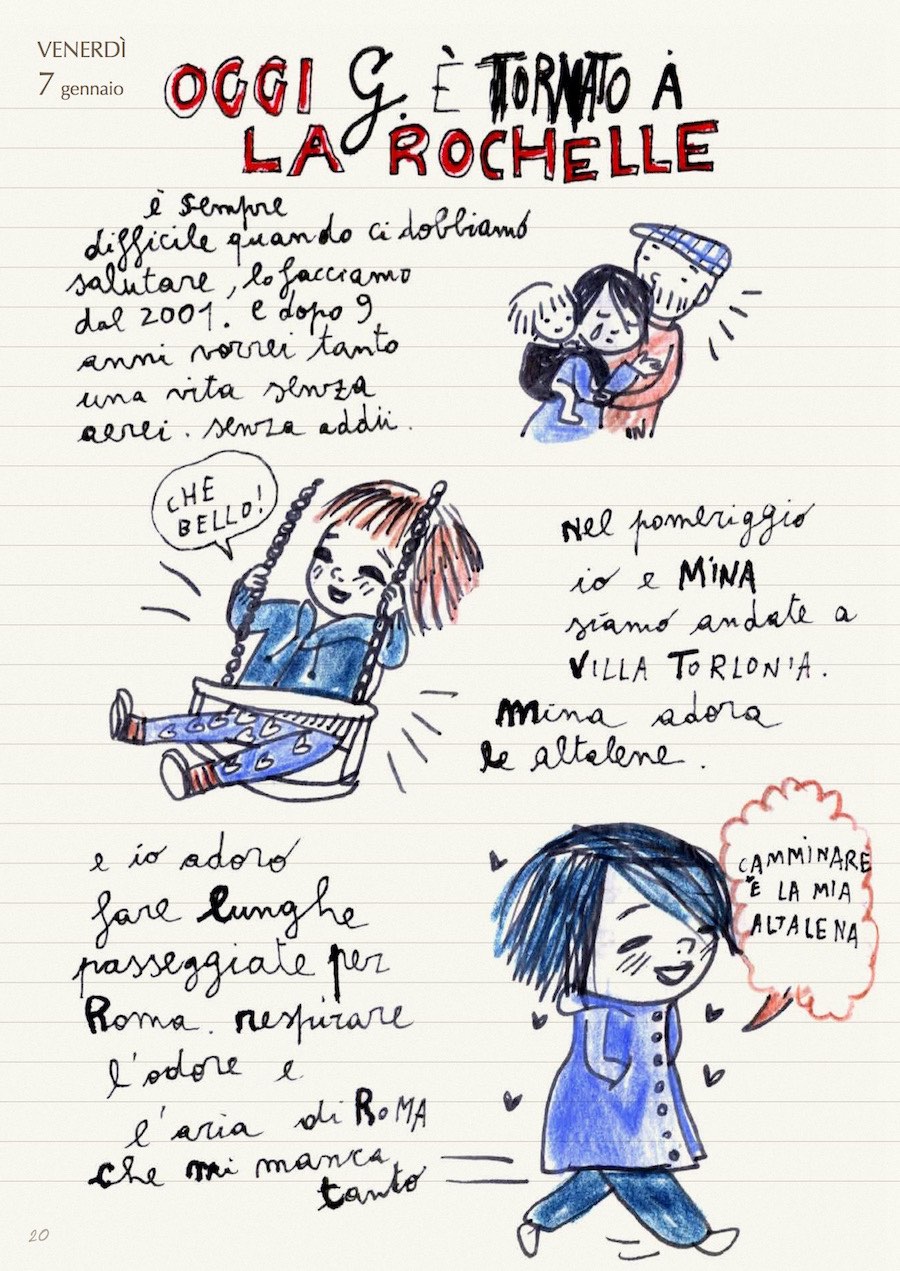 VENERDÌ
7 gennaio
OGGI G. È TORNATO A
LA ROCHELLE
è sempre
difficile quando ci dobbiamo
salutare, lo facciamo
dal 2001. e dopo 9
anni vorrei tanto
una vita senza
aerei. senza addii.
CHE
BELLO!
Nel pomeriggio
io e MINA
siamo andate a
VILLA TORLONIA.
Mina adora
le altalene.
e io adoro
fare lunghe
passeggiate per
Roma. respirare
l'odore e
l'aria di ROMA
che mi manca
tanto
CAMMINARE
È LA MIA
ALTALENA
20